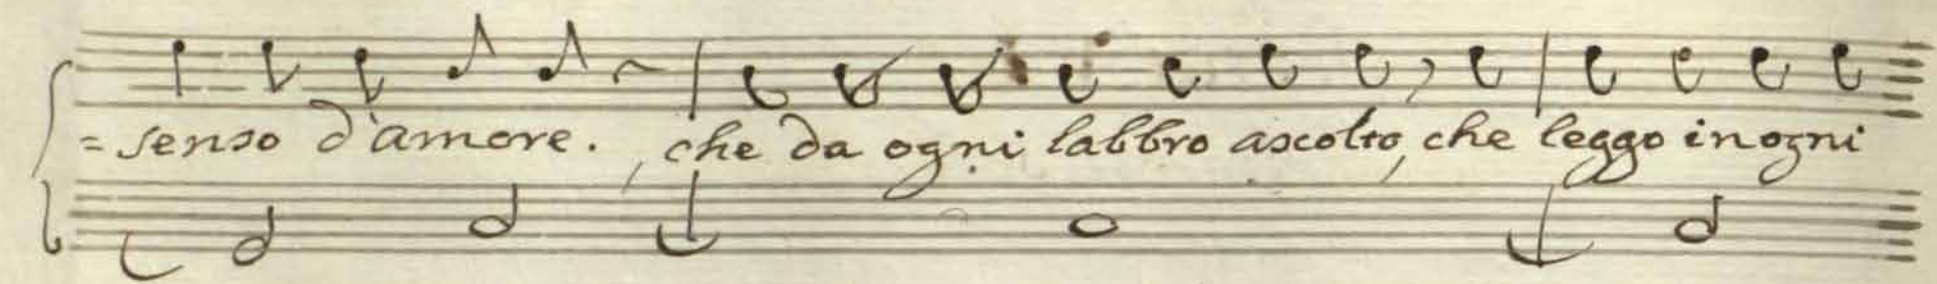 =senso d'amore. , che da ogni labbro ascolto, che leggo in ogni